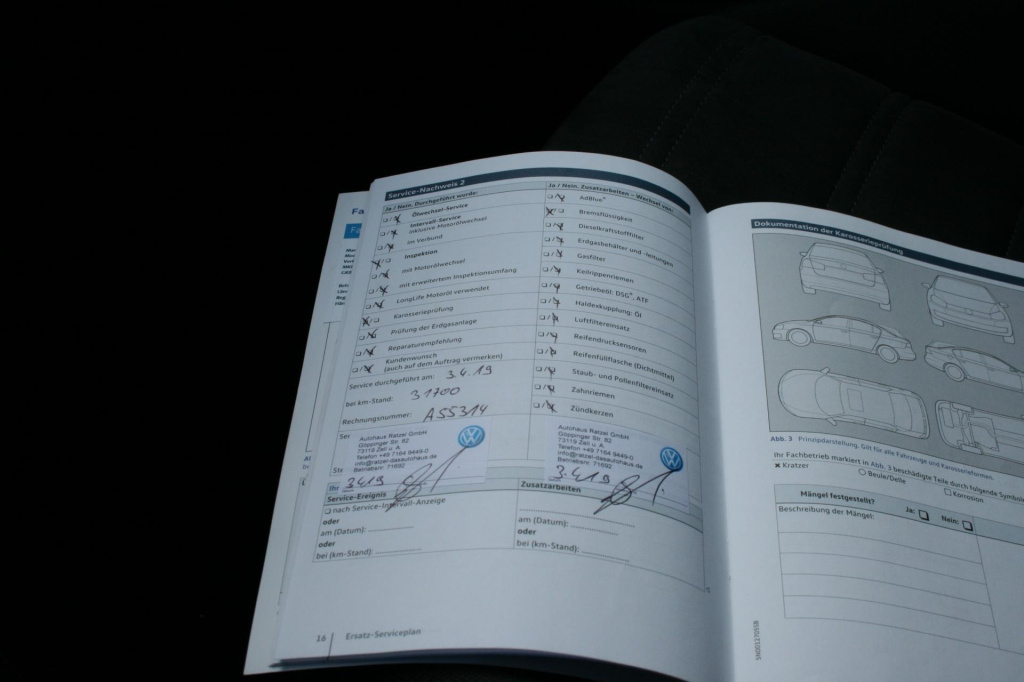 Service-Nachweis 2
Ja / Nein. Durchgeführt wurde:
Ölwechsel-Service
Intervall-Service
inklusive Motorölwechsel
im Verbund
Inspektion
mit Motorölwechsel
mit erweitertem Inspektionsumfang
LongLife Motoröl verwendet
Karosserieprüfung
Prüfung der Erdgasanlage
Reparaturempfehlung
Kundenwunsch
(auch auf dem Auftrag vermerken)
Service durchgeführt am: 3.4.19
bei km-Stand: 31700
Rechnungsnummer: A55314
Autohaus Ratzel GmbH
Göppinger Str. 82
73119 Zell u. A.
Telefon +49 7164 9449-0
info@ratzel-dasautohaus.de
Betriebsnr: 71692
3.4.19
Service-Ereignis
nach Service-Intervall-Anzeige
oder
am (Datum):
oder
bei (km-Stand):
Ja / Nein. Zusatzarbeiten – Wechsel von:
AdBlue®
Bremsflüssigkeit
Dieselkraftstofffilter
Erdgasbehälter und -leitungen
Gasfilter
Keilrippenriemen
Getriebeöl: DSG®, ATF
Haldexkupplung: Öl
Luftfiltereinsatz
Reifendrucksensoren
Reifenfüllflasche (Dichtmittel)
Staub- und Pollenfiltereinsatz
Zahnriemen
Zündkerzen
Autohaus Ratzel GmbH
Göppinger Str. 82
73119 Zell u. A.
Telefon +49 7164 9449-0
info@ratzel-dasautohaus.de
Betriebsnr: 71692
3.4.19
Zusatzarbeiten
am (Datum):
oder
bei (km-Stand):
16 Ersatz-Serviceplan
Dokumentation der Karosserieprüfung
Abb. 3 Prinzipdarstellung. Gilt für alle Fahrzeuge und Karosserieformen.
Ihr Fachbetrieb markiert in Abb. 3 beschädigte Teile durch folgende Symbole
Kratzer Beule/Delle Korrosion
Mängel festgestellt? Ja: Nein:
Beschreibung der Mängel: